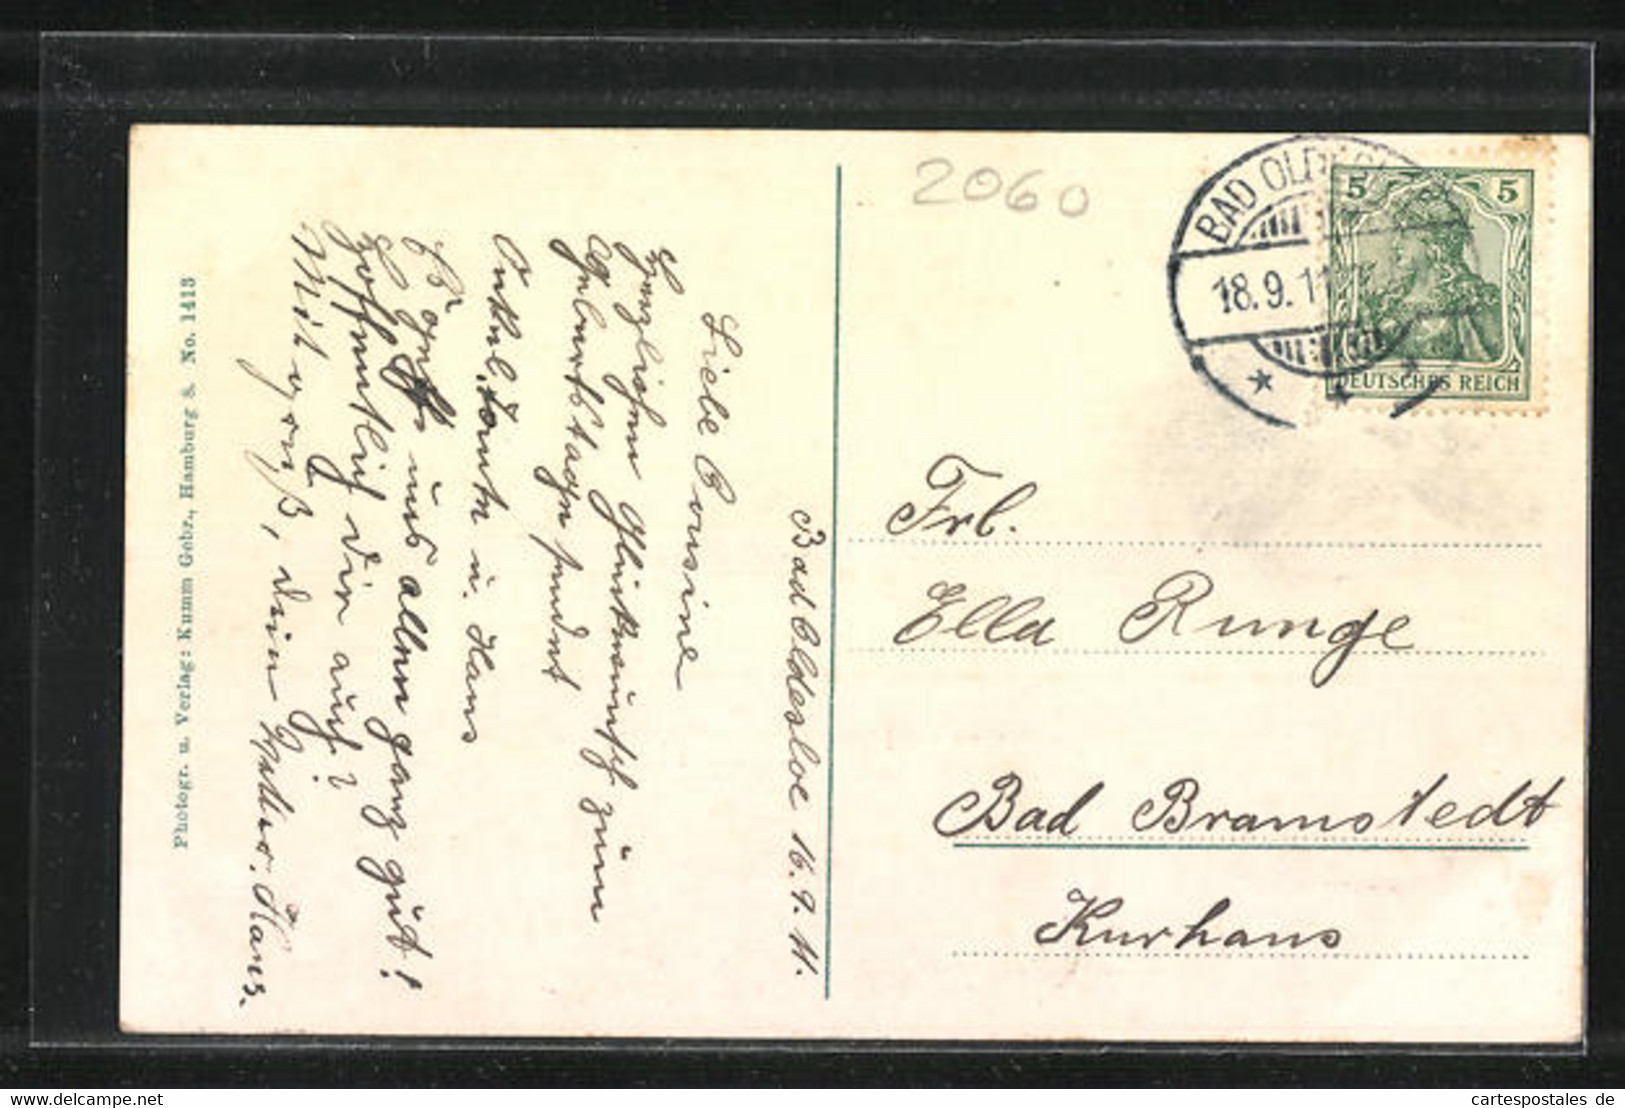 Bad Oldesloe 16.9.11.
Liebe Cousine
Herzlichen Glückwunsch zum
Geburtstage sendet
Onkel, Tante u. Hans
uns allen ganz gut!
Hoffentlich dir auch?
Mit Gruß, dein Hans.
Photogr. u. Verlag: Kumm Gebr., Hamburg 8. No. 1413
2060
BAD OLD
18.9.11
5 5
DEUTSCHES REICH
Frl.
Ella Runge
Bad Bramstedt
Kurhaus
www.delcampe.net
cartespostales de